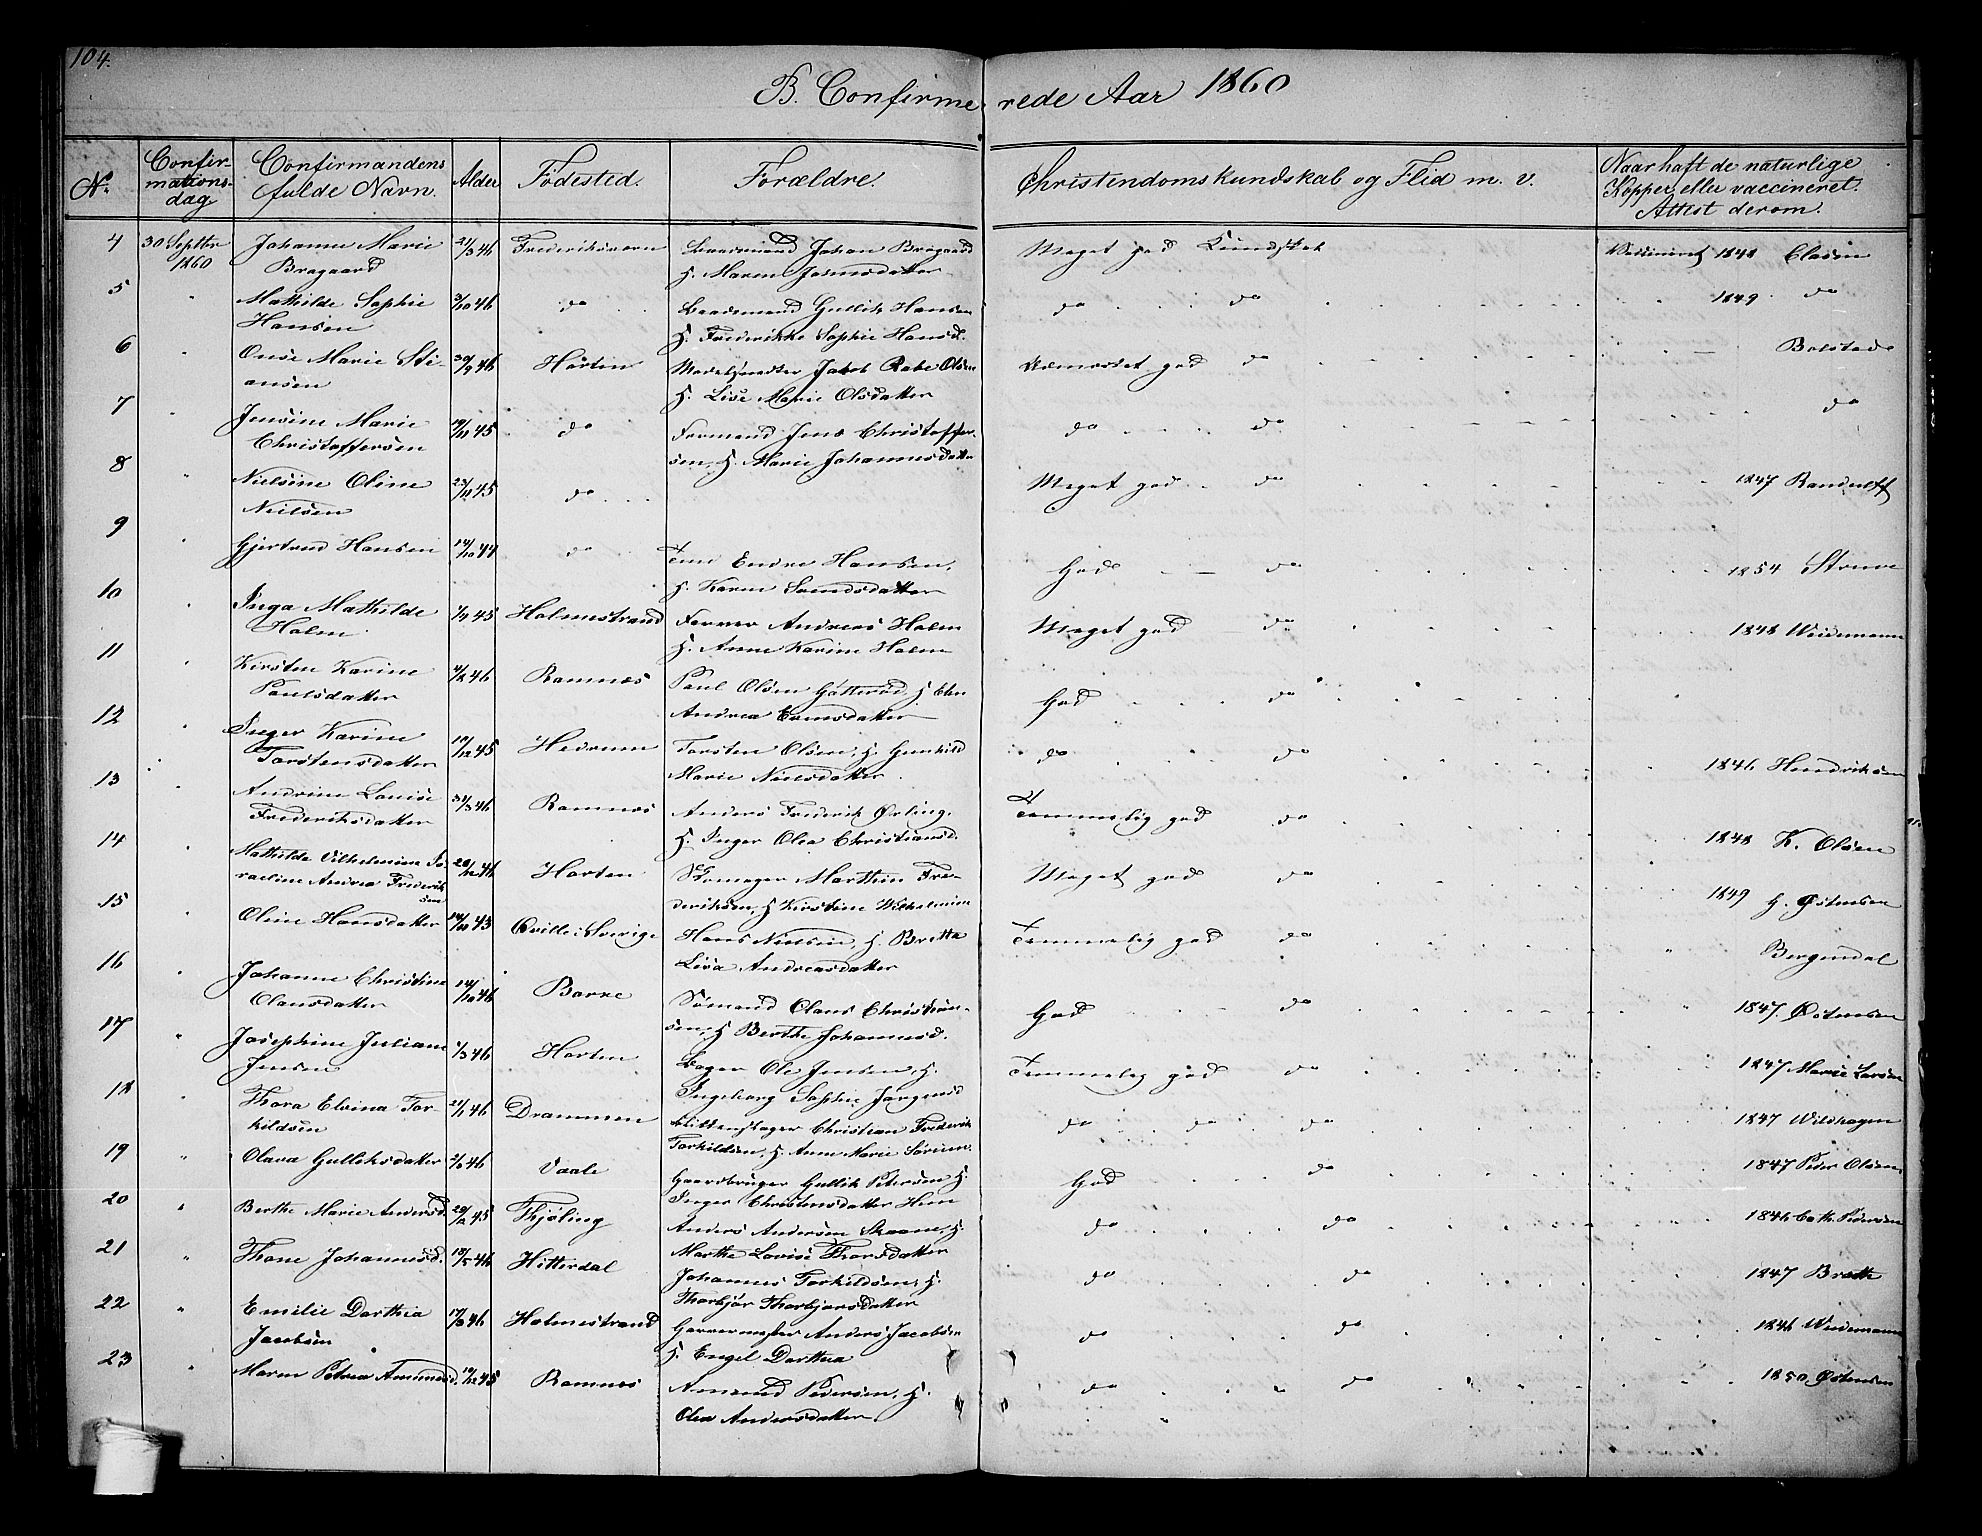 104.
B. Confirmerede Aar 1860
No. Confirmationsdag Confirmandens fulde Navn. Alder Födested. Forældre. Christendomskundskab og Flid m. v. Naar haft de naturlige Kopper, eller vaccineret. Attest derom.
4 30 Septbr 1860 Johanne Marie Bragaard 21/3 46 Frederiksværn Baadsmand Johan Bragaard H. Maren Jansdatter Meget god Kundskab Vaccineret 1848 Clasen
5 " Mathilde Sophie Hansen 3/10 46 do Baadsmand Gullik Hansen H. Frederikke Sophie Hansd. do do 1849 do
6 " Marie Stiansen 30/9 46 Horten Jakob Rabe Olsen H. Lise Marie Olsdatter Udmærket god do Bolstad
7 " Jensine Marie Christoffersen 45 do Formand Jens Christoffersen, H. Marie Johannesdatter do do do
8 " Nielsine Oline Nielsen 45 do Meget god do 1847
9 " Gjertrud Hansen 14/10 44 do Endre Hansen, H. Karen Svendsdatter God do 1854 Struve
10 " Inga Mathilde Holm 1/9 45 Holmestrand Farver Andreas Holm H. Anne Karine Holm Meget god do 1848 Weidemann
11 " Kirsten Karine Paulsdatter 46 Ramnæs Paul Olsen H. Andrea God do
12 " Inger Karine Torstensdatter 19/12 45 Hedrum Torsten Olsen, H. Gunhild Marie Nielsdatter do do 1846 Hendriksen
13 " Andrine Lovise Frederiksdatter 31/3 46 Ramnæs Anders Frederik Ørling, H. Inger Olea Christiansd. Temmelig god do 1848 K. Olsen
14 " Mathilde Vilhelmine Andrea Frederiksen 46 Horten Skomager Marthin Frederiksen, H. Kirstine Wilhelmine Meget god do 1849 H. Østensen
15 " Oline Hansdatter 43 Qville i Sverige Hans Nielsen, H. Bretta Lisa Andreasdatter Temmelig god do Bergendal
16 " Johanne Christine Olausdatter 14/10 46 Borre Sømand Olaus Christiansen, H Berthe Johannesd. God do 1847 Østensen
17 " Josephine Juliane Jensen 1/3 46 Horten Bager Ole Jensen, H. Ingeborg Sophie Jørgensd Temmelig god do 1847 Marie Larsen
18 " Thora Elvina Torkildsen 21/1 46 Drammen Christian Frederik Torkildsen, H. Anne Marie do do do 1847 Wildhagen
19 " Olava Gulliksdatter 46 Vaale Gaardbruger Gullik Petersen H. Inger Christensdatter God do 1847 Peder Olsen
20 " Berthe Marie Andersd. 45 Thjøling Anders Andersen Skaane, H. Marthe Lovise Thorsdatter do do 1846 Cath. Pedersen
21 " Thone Johannesd. 46 Hitterdal Johannes Torkildsen, H. Thorbjør Thorbjørnsdatter do do 1847 Bratte
22 " Emilie Dorthea Jacobsen 46 Holmestrand Garvermester Anders Jacobsen H. Engel Dorthea do do 1846 Wiedemann
23 " Maren Petrea Amundsd. 19/12 45 Ramnæs Amund Pedersen, H. Olea Andersdatter do do 1850 Østensen